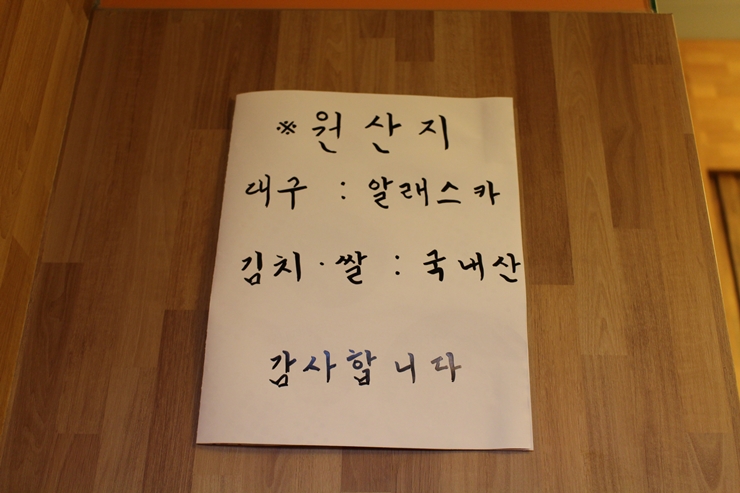 ※ 원산지
대구 : 알래스카
김치·쌀 : 국내산
감사합니다